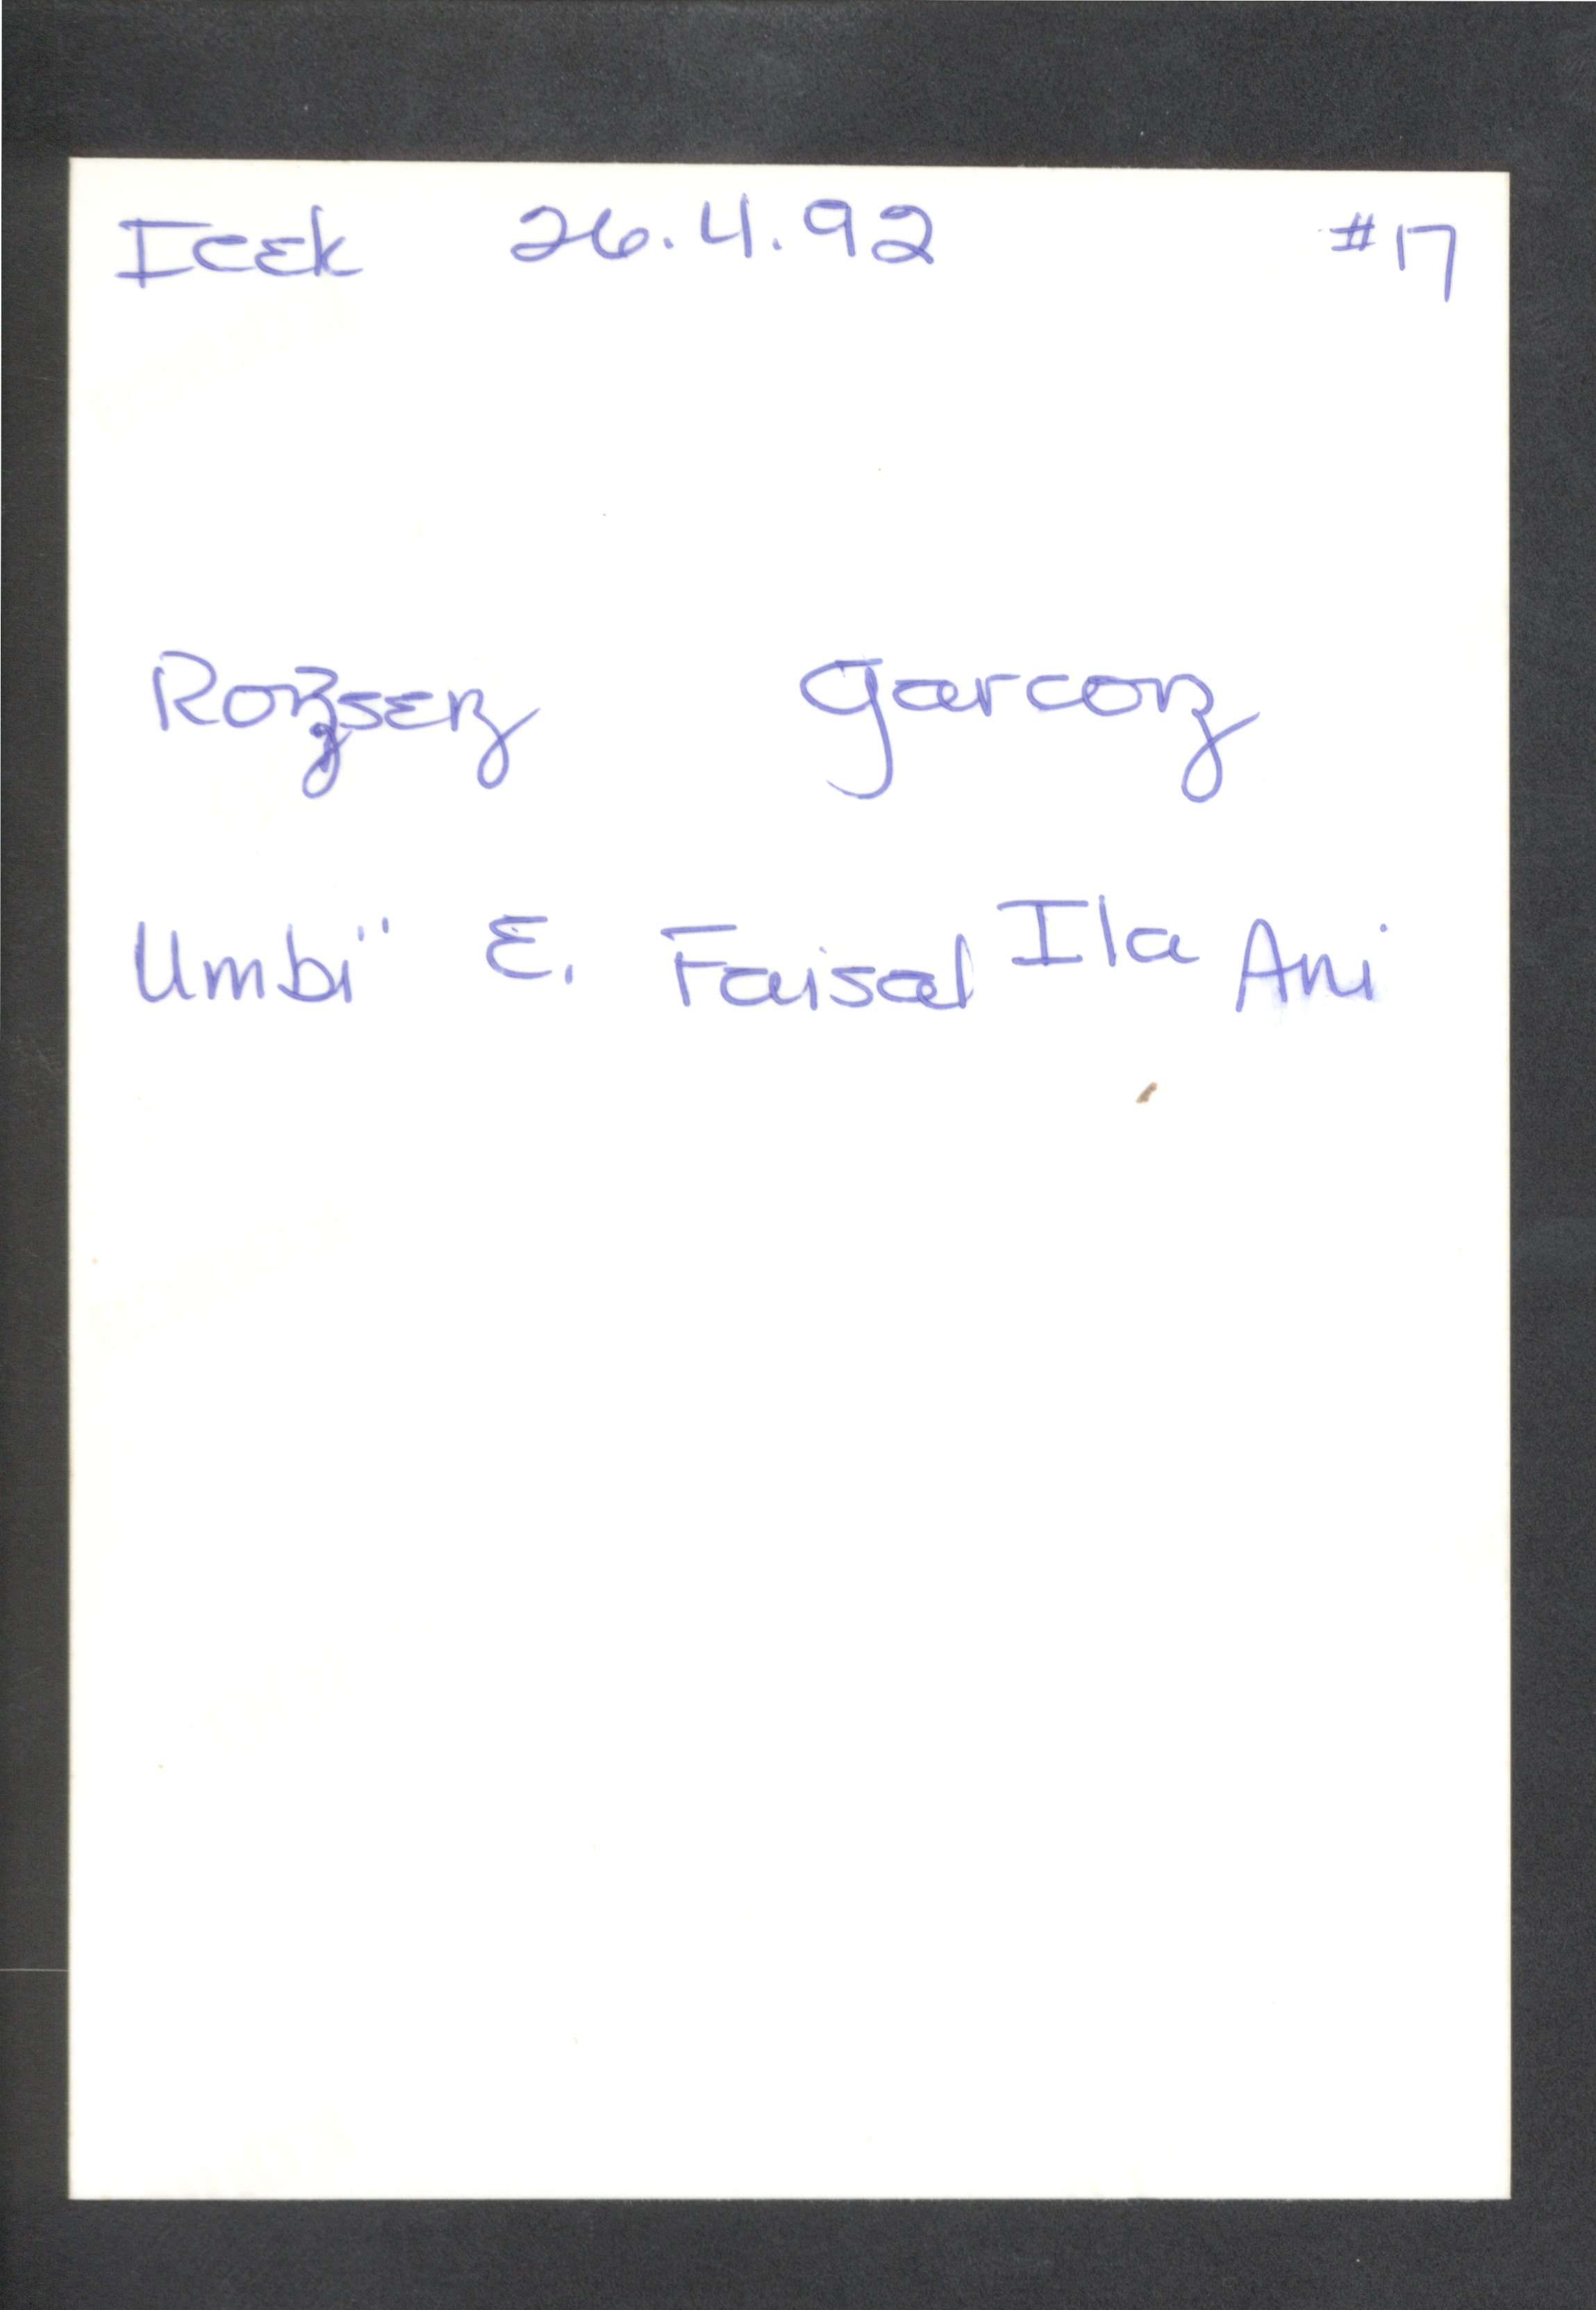 Icek 26.4.92 #17
Rozsez Garcoz
Umbi" E. Faisal Ila Ani